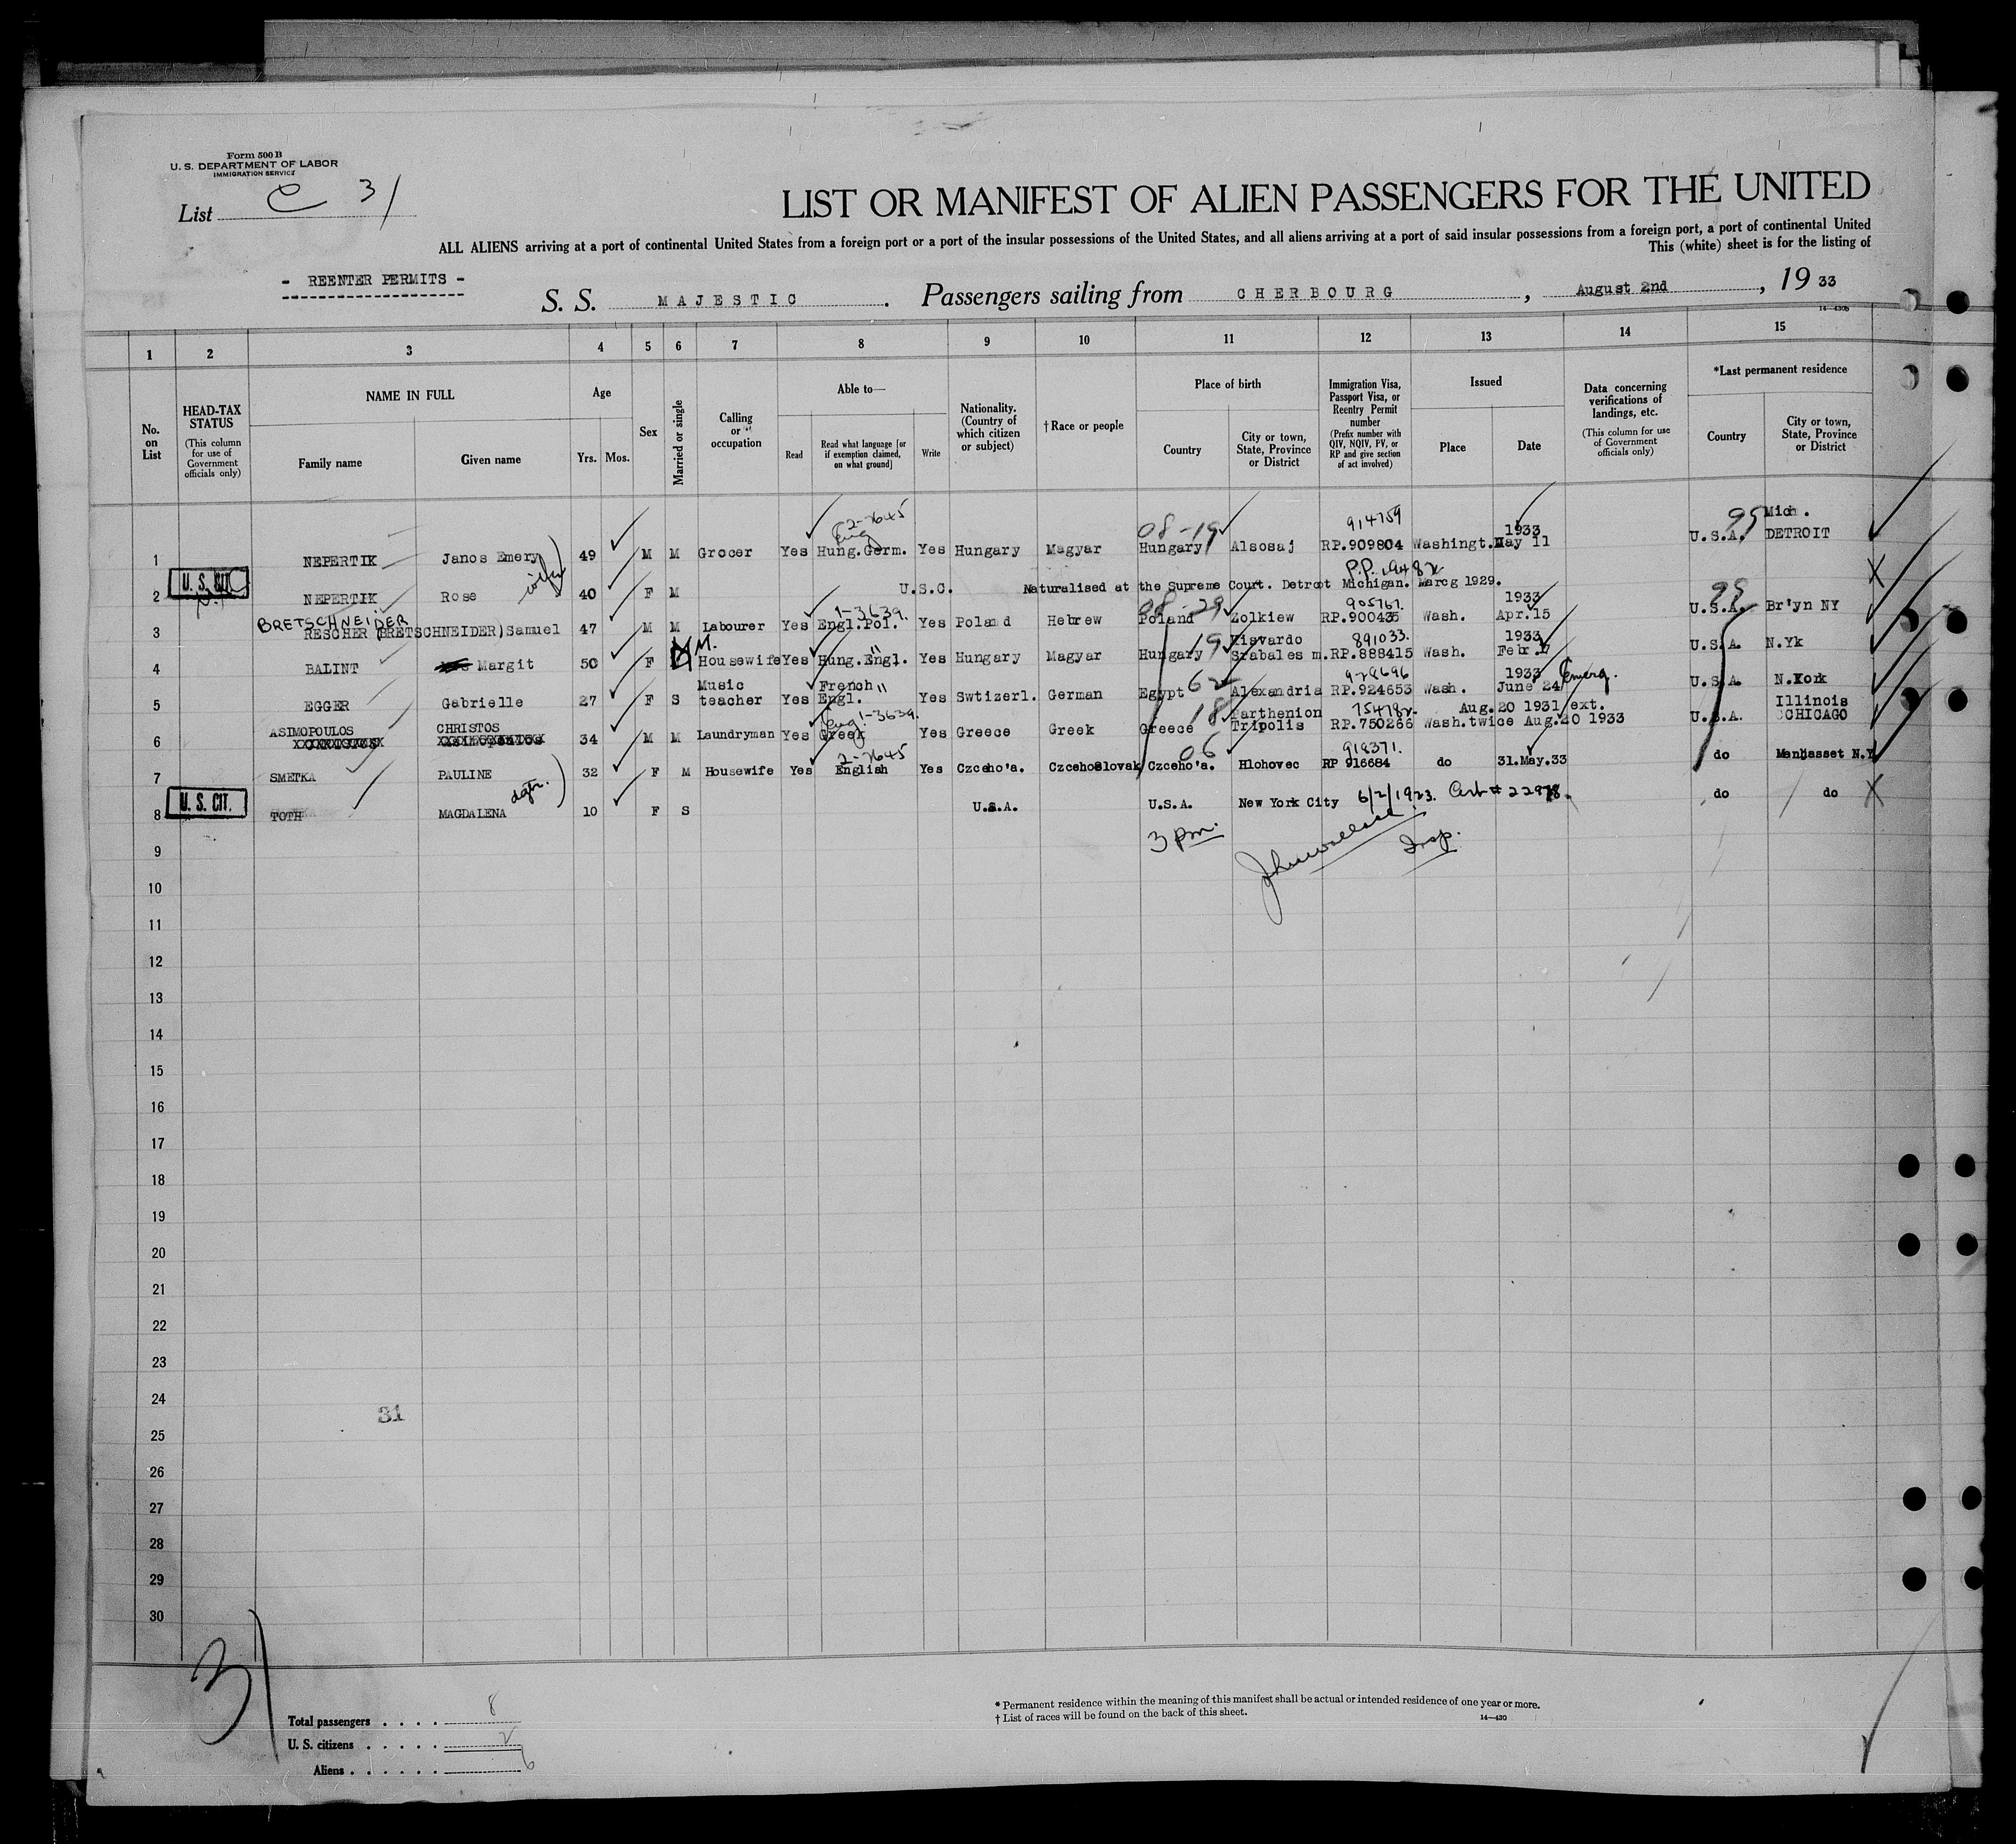 Form 500 B
U. S. DEPARTMENT OF LABOR
IMMIGRATION SERVICE
List C 31
LIST OR MANIFEST OF ALIEN PASSENGERS FOR THE UNITED
ALL ALIENS arriving at a port of continental United States from a foreign port or a port of the insular possessions of the United States, and all aliens arriving at a port of said insular possessions from a foreign port, a port of continental United
This (white) sheet is for the listing of
- REENTER PERMITS -
S. S. MAJESTIC . Passengers sailing from CHERBOURG , August 2nd , 19 33
1 2 3 4 5 6 7 8 9 10 11 12 13 14 15
No. on List
HEAD-TAX STATUS (This column for use of Government officials only)
NAME IN FULL Family name Given name
Age Yrs. Mos.
Sex
Married or single
Calling or occupation
Able to— Read Read what language [or if exemption claimed, on what ground] Write
Nationality. (Country of which citizen or subject)
† Race or people
Place of birth Country City or town, State, Province or District
Immigration Visa, Passport Visa, or Reentry Permit number (Prefix number with QIV, NQIV, PV, or RP and give section of act involved)
Issued Place Date
Data concerning verifications of landings, etc. (This column for use of Government officials only)
*Last permanent residence Country City or town, State, Province or District
2-7645 08-19 914759 1933 95 Mich.
1 NEPERTIK Janos Emery 49 M M Grocer Yes Hung.Germ. Eng Yes Hungary Magyar Hungary Alsosaj RP.909804 Washingt. May 11 U.S.A. DETROIT
U. S. CIT. P.P.
2 NEPERTIK Rose wife 40 F M U.S.C. Naturalised at the Supreme Court. Detroit Michigan. Marcg 1929.
BRETSCHNEIDER 1-3639. 08-29 905767. 1933 95
3 RESCHER (BRETSCHNEIDER) Samuel 47 M M Labourer Yes Engl.Pol. Yes Poland Hebrew Poland Zolkiew RP.900435 Wash. Apr.15 U.S.A. Br'yn NY
M. " 19 Kisvardo 891033. 1933
4 BALINT Margit 50 F Housewife Yes Hung.Engl. Yes Hungary Magyar Hungary Szabales m. RP.888415 Wash. Febr.7 U.S.A. N.Yk
Music French " 62 928696 1933 Emerg.
5 EGGER Gabrielle 27 F S teacher Yes Engl. Yes Swtizerl. German Egypt Alexandria RP.924653 Wash. June 24 U.S.A. N.York
ASIMOPOULOS CHRISTOS Eng 1-3639. 18 Parthenion Aug.20 1931 ext. Illinois
6 34 M M Laundryman Yes Greek Yes Greece Greek Greece Tripolis RP.750266 Wash.twice Aug.20 1933 U.S.A. CHICAGO
2-7645 06 918371.
7 SMETKA PAULINE 32 F M Housewife Yes English Yes Czceho'a. CzcehoSlovak Czceho'a. Hlohovec RP 916684 do 31.May.33 do Manhasset N.Y
U. S. CIT.
8 TOTH MAGDALENA dgtr. 10 F S U.S.A. U.S.A. New York City 6/2/1923. Cert # 22978. do do
3 pm. Insp.
9
10
11
12
13
14
15
16
17
18
19
20
21
22
23
24
31
25
26
27
28
29
30
31
Total passengers . . . . 8
U. S. citizens . . . . . 2
Aliens . . . . . . 6
* Permanent residence within the meaning of this manifest shall be actual or intended residence of one year or more.
† List of races will be found on the back of this sheet.
14—430